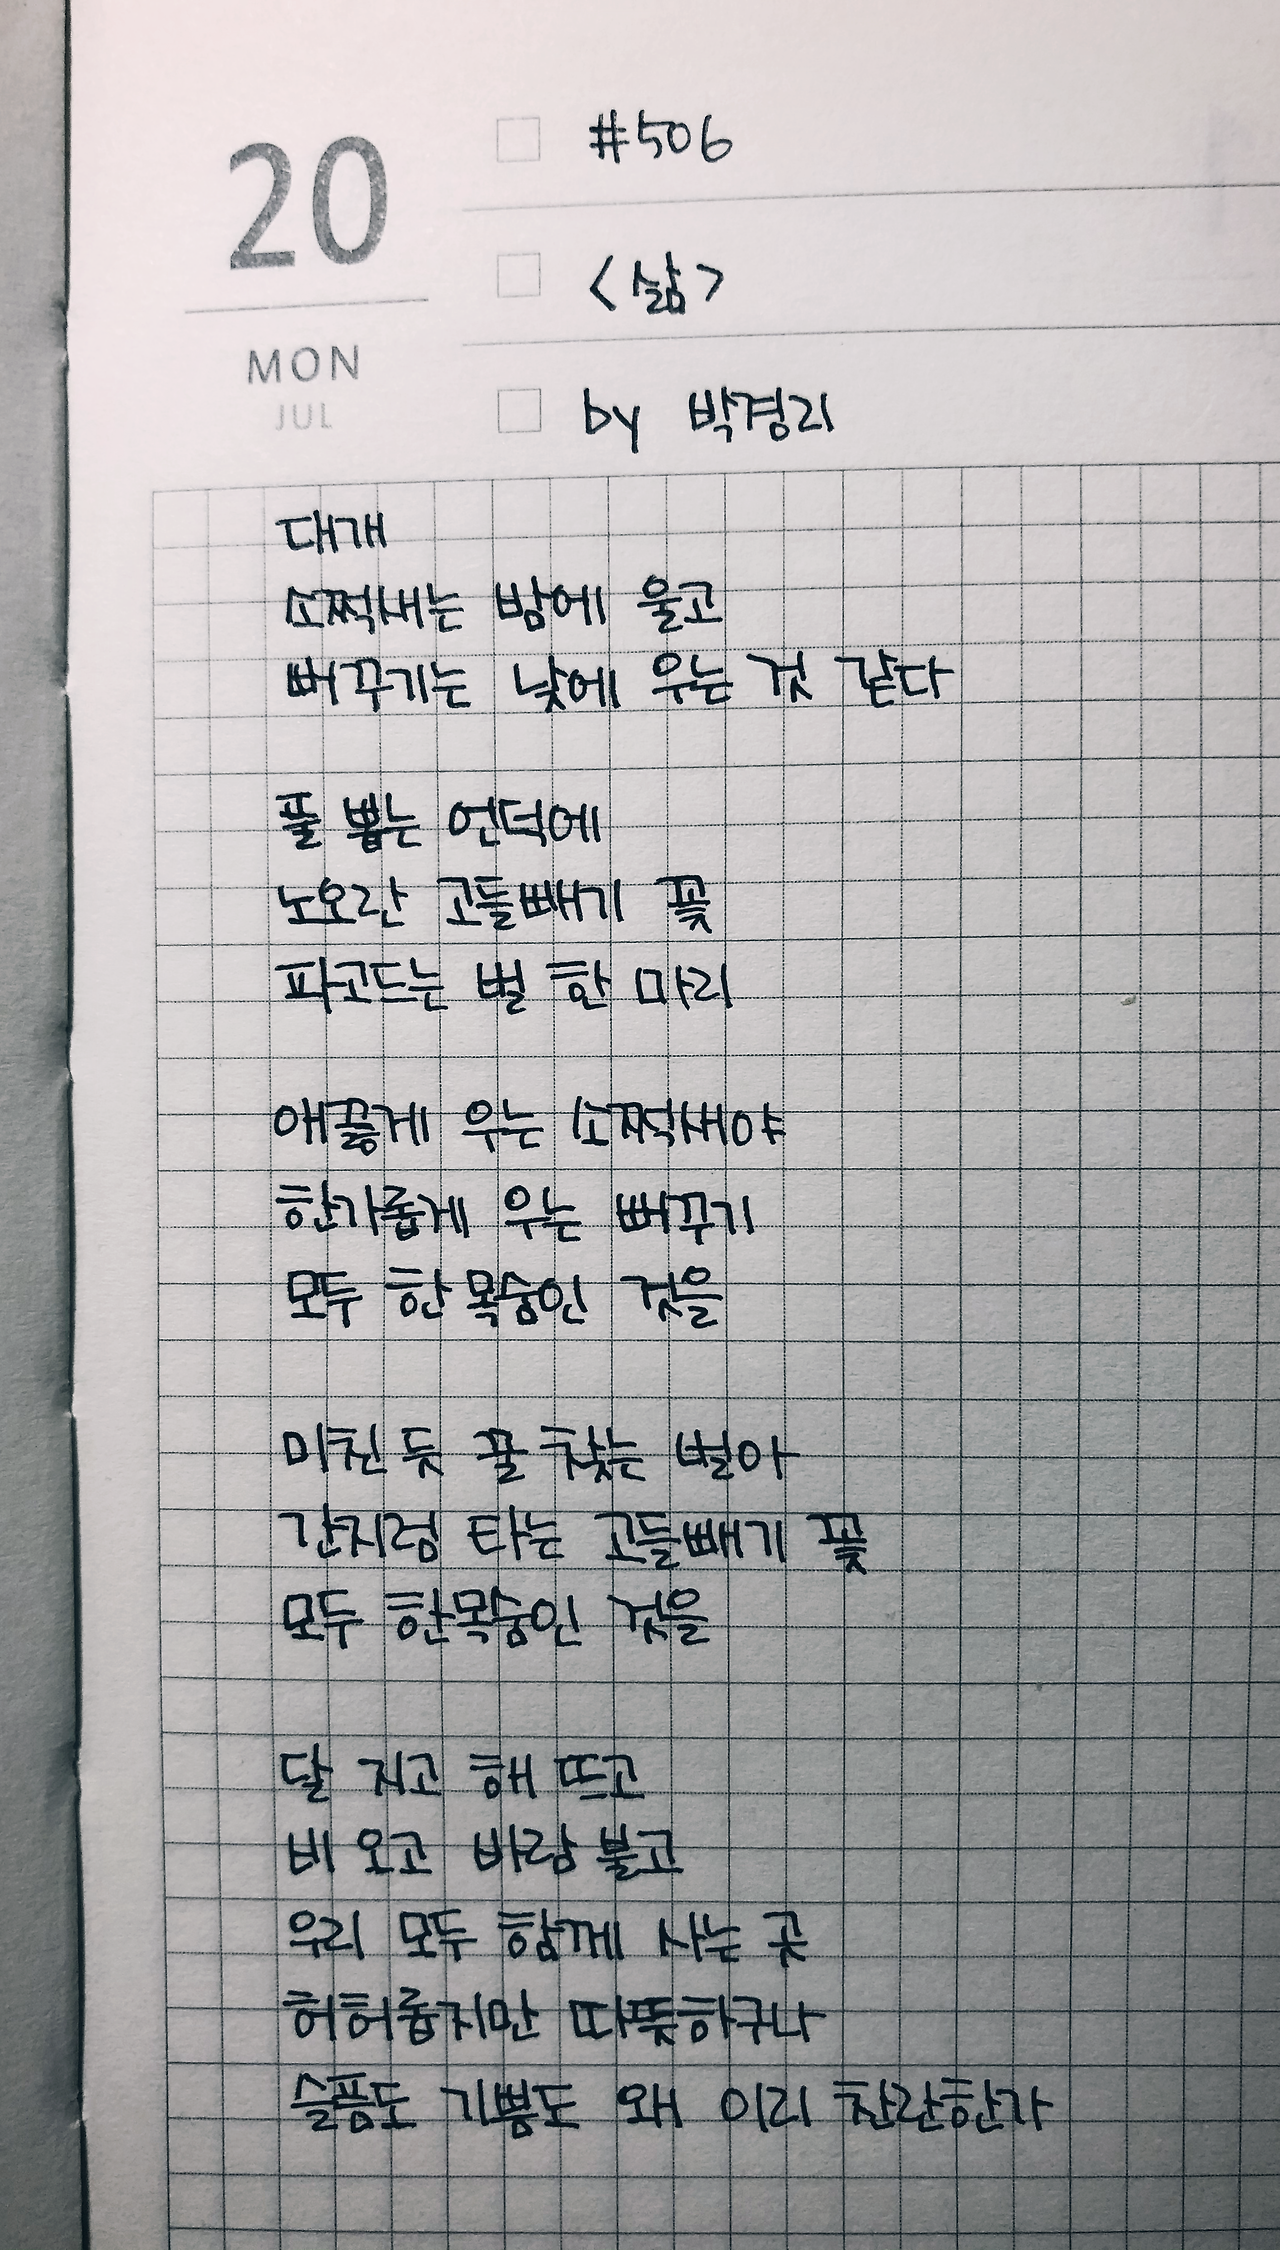 20
MON
JUL
#506
<삶>
by 박경리
대개
소쩍새는 밤에 울고
뻐꾸기는 낮에 우는 것 같다
풀 뽑는 언덕에
노오란 고들빼기 꽃
파고드는 벌 한 마리
애끓게 우는 소쩍새야
한가롭게 우는 뻐꾸기
모두 한 목숨인 것을
미친 듯 꿀 찾는 벌아
간지럼 타는 고들빼기 꽃
모두 한목숨인 것을
달 지고 해 뜨고
비 오고 바람 불고
우리 모두 함께 사는 곳
허허롭지만 따뜻하구나
슬픔도 기쁨도 왜 이리 찬란한가